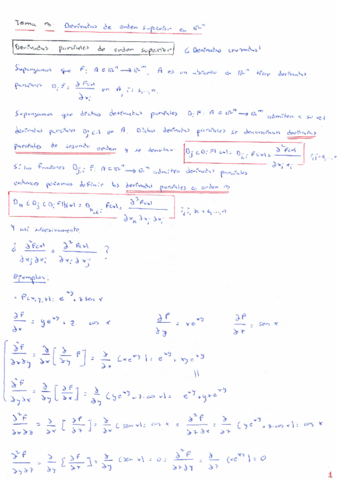 Tema 13 Derivadas de orden superior en ℝⁿ
Derivadas parciales de orden superior / "Derivadas cruzadas"
Supongamos que F: A⊂ℝⁿ → ℝᵐ, A es un abierto de ℝⁿ tiene derivadas
parciales Dᵢ F = ∂F(x)/∂xᵢ en A, i=1,...,n.
Supongamos que dichas derivadas parciales Dᵢ F: A⊂ℝⁿ → ℝᵐ admiten a su vez
derivadas parciales Dⱼ en A. Dichas derivadas parciales se denominan derivadas
parciales de segundo orden y se denotan Dⱼ(Dᵢ F)(x) = Dⱼ,ᵢ F(x) = ∂²F(x)/∂xⱼ ∂xᵢ i,j=1,...,n
Si las funciones Dⱼ,ᵢ F: A⊂ℝⁿ → ℝᵐ admiten derivadas parciales
entonces podemos definir las derivadas parciales de orden 3
Dₖ(Dⱼ(Dᵢ F))(x) = Dₖ,ⱼ,ᵢ F(x) = ∂³F(x)/∂xₖ ∂xⱼ ∂xᵢ i,j,k=1,...,n
Y así sucesivamente.
¿ ∂²F(x)/∂xⱼ∂xᵢ = ∂²F(x)/∂xᵢ∂xⱼ ?
Ejemplos:
- F(x,y,z) = e^{xy} + z sen x
∂F/∂x = y e^{xy} + z cos x ∂F/∂y = x e^{xy} ∂F/∂z = sen x
∂²F/∂x∂y = ∂/∂x [∂/∂y F] = ∂/∂x (x e^{xy}) = e^{xy} + xy e^{xy}
||
∂²F/∂y∂x = ∂/∂y [∂F/∂x] = ∂/∂y (y e^{xy} + z cos x) = e^{xy} + yx e^{xy}
∂²F/∂x∂z = ∂/∂x [∂F/∂z] = ∂/∂x (sen x) = cos x = ∂²F/∂z∂x = ∂/∂z (y e^{xy} + z cos x) = cos x
∂²F/∂y∂z = ∂/∂y [∂F/∂z] = ∂/∂y (sen x) = 0 = ∂²F/∂z∂y = ∂/∂z (x e^{xy}) = 0
1